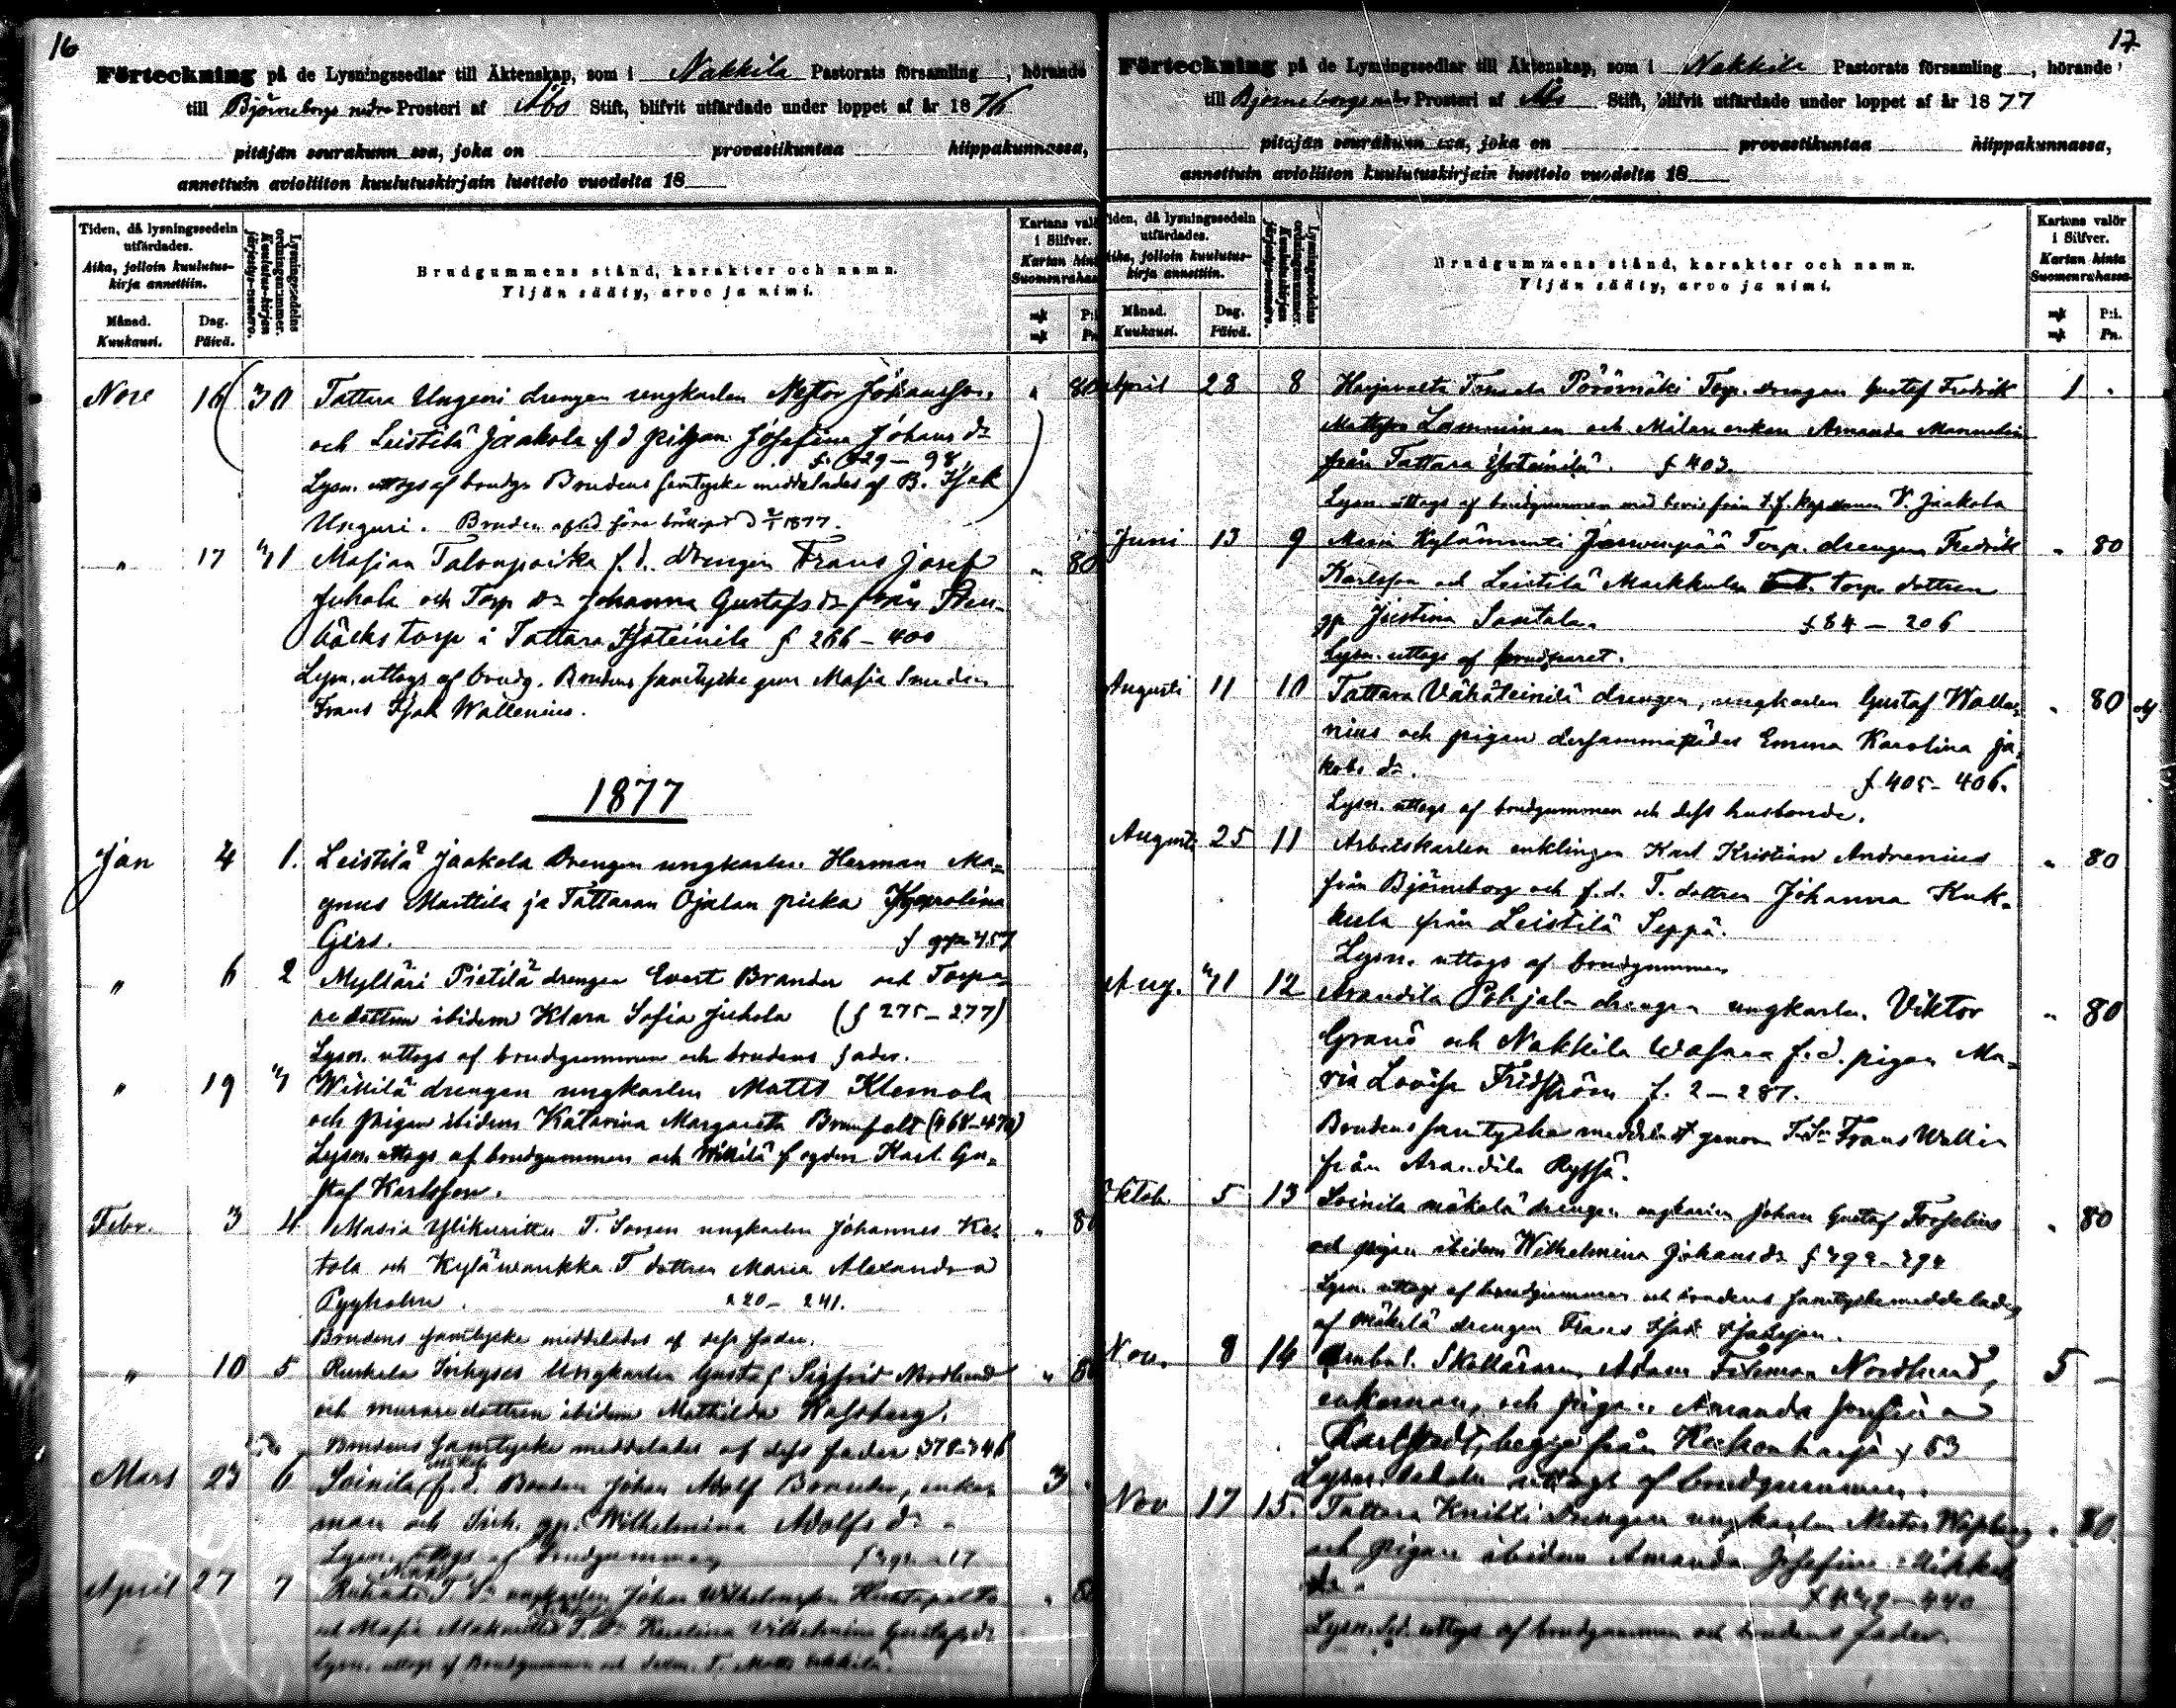 16
Förteckning på de Lysningssedlar till Äktenskap, som i Nakkila Pastorats församling, hörande
till Björneborgs nedre Prosteri af Åbo Stift, blifvit utfärdade under loppet af år 1876
pitäjän seurakunn ssa, joka on provastikuntaa hiippakunnassa,
annettuin avioliiton kuulutuskirjain luettelo vuodelta 18
Tiden, då lysningssedeln utfärdades.
Aika, jolloin kuulutus-kirja annettiin.
Månad.
Kuukausi.
Dag.
Päivä.
Lysningssedelns ordningsnummer.
Kuulutus-kirjan järjestys-numero.
Brudgummens stånd, karakter och namn.
Yljän sääty, arvo ja nimi.
Kartans valör i Silfver.
Kartan hinta Suomenrahassa
Nov 16 30 Tattara Ungeri drengen ungkarlen Nestor Johansson " 80
och Leistilä Jaakola f d pigan Josefina Johans dr
Lysn. uttogs af brudg. Brudens samtycke meddelades af B. Isak
Unguri. Bruden afled före bröllopet 1877.
" 17 31 Masian Talonpoika f. d. drengen Frans Josef " 80
Juhola och Torp dr Johanna Gustafs dr från
bäcks torp i Tattara Isoteinilä f 266 – 400
Lysn. uttogs af brudg. Brudens samtycke gen Masia Smeden
Frans Isak Wallenius.
1877
Jan 4 1. Leistilä Jaakola Drengen ungkarlen Herman Ma=
gnus Marttila ja Tattaran Ojalan piika Karolina
Girs.
" 6 2 Mylläri Pietilä drengen Evert Brander och Torpa=
redottren ibidem Klara Sofia Juhola (f 275 – 277)
Lysn. uttogs af brudgummen och brudens fader.
" 19 3 Wikilä drengen ungkarlen Matts Klemola
och pigan ibidem Katarina Margareta (468–470)
Lysn. uttogs af brudgummen och Wikilä fogden Karl Gu=
staf Karlsson.
Febr. 3 4 Masia Ylikuritta T. Sonen ungkarlen Johannes Ke= " 80
tola och Kyläwankka T dottren Maria Alexandra
Pyyholm. 220 – 241.
Brudens samtycke meddelades af dess fader.
" 10 5 Ruskela Inhyses Ungkarlen Gustaf Sigfrid Nordlund " 80
och murare dottren ibidem Mathilda
Brudens samtycke meddelades af dess fader 378–346
Mars 23 6 Soinila f. d. Bonden Johan Adolf Brander, enke= 3
man och Inh. Wilhelmina Adolfs dr
Lysn. uttogs af Brudgummen
April 27 7 T. Sn ungkarlen Johan Wilhelmsson
och Masia T. Dr Karolina Vilhelmina Gustafs dr
Lysn. uttogs af Brudgummen och
17
Förteckning på de Lysningssedlar till Äktenskap, som i Nakkila Pastorats församling, hörande
till Björneborgs nedre Prosteri af Åbo Stift, blifvit utfärdade under loppet af år 1877
pitäjän seurakunn ssa, joka on provastikuntaa hiippakunnassa,
annettuin avioliiton kuulutuskirjain luettelo vuodelta 18
Tiden, då lysningssedeln utfärdades.
Aika, jolloin kuulutus-kirja annettiin.
Månad.
Kuukausi.
Dag.
Päivä.
Lysningssedelns ordningsnummer.
Kuulutus-kirjan järjestys-numero.
Brudgummens stånd, karakter och namn.
Yljän sääty, arvo ja nimi.
Kartans valör i Silfver.
Kartan hinta Suomenrahassa
mk P:i.
mk Pn.
April 28 8 Harjavalta Torp. drengen Gustaf Fredrik 1 "
Mattsson Lamminen och Amanda
från Tattara Isoteinilä. f 403.
Lysn. uttogs af brudgummen med bevis från V. Jaakola
Juni 13 9 Torp. drengen Fredrik " 80
Karlsson och Leistilä Markkula torp. dottren
Justina Santala f 84 – 206
Lysn. uttogs af brudparet.
Augusti 11 10 Tattara Vähäteinilä drengen, ungkarlen Gustaf Walle= " 80
nius och pigan dersammastädes Emma Karolina Ja=
kobs dr. f 405 – 406.
Lysn. uttogs af brudgummen och dess husbonde.
Augusti 25 11 Arbetskarlen enklingen Karl Kristian Andrenius " 80
från Björneborg och f. d. T. dottren Johanna Kuk=
kula från Leistilä Seppä.
Lysn. uttogs af brudgummen
Aug. 31 12 Arandila Pohjala drengen ungkarlen Viktor " 80
Granö och Nakkila f. d. pigan Ma=
ria Lovisa Fridström f. 2 – 287.
Brudens samtycke meddelat genom Frans Wallin
från Arandila Ryssä.
Oktob. 5 13 Soinila mäkelä drengen ungkarlen Johan Gustaf " 80
och pigan ibidem Wilhelmina Johans dr
Lysn. uttogs af brudgummen och brudens samtycke meddelades
af mäkelä drengen Frans Isak
Nov. 8 14 Skollärare, Adam Nordlund, 5 –
enkeman, och pigan Amanda Josefina
Karlstedt, begge från f 53
Lysn. sedeln uttogs af brudgummen.
Nov 17 15. Tattara Knihti drengen ungkarlen Nestor " 80
och pigan ibidem Amanda Josefina Mikkels
dr.
Lysn. sed. uttogs af brudgummen och brudens fader.